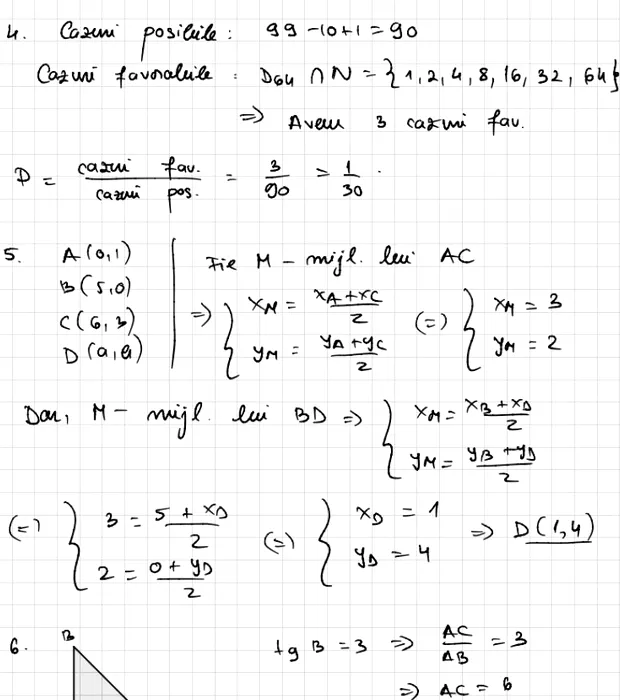 4. Cazuri posibile : 99 - 10 + 1 = 90
Cazuri favorabile : D64 ∩ N = {1, 2, 4, 8, 16, 32, 64}
=> Avem 3 cazuri fav.
P = cazuri fav. / cazuri pos. = 3/90 = 1/30 .
5. A(0,1)
B(5,0)
C(6,3)
D(a,b)
Fie M - mijl. lui AC
=> { xM = (xA + xC)/2 (=) { xM = 3
yM = (yA + yC)/2 yM = 2
Dar, M - mijl. lui BD => { xM = (xB + xD)/2
yM = (yB + yD)/2
(=) { 3 = (5 + xD)/2 (=) { xD = 1 => D(1,4)
2 = (0 + yD)/2 yD = 4
6. B tg B = 3 => AC/AB = 3
=> AC = 6